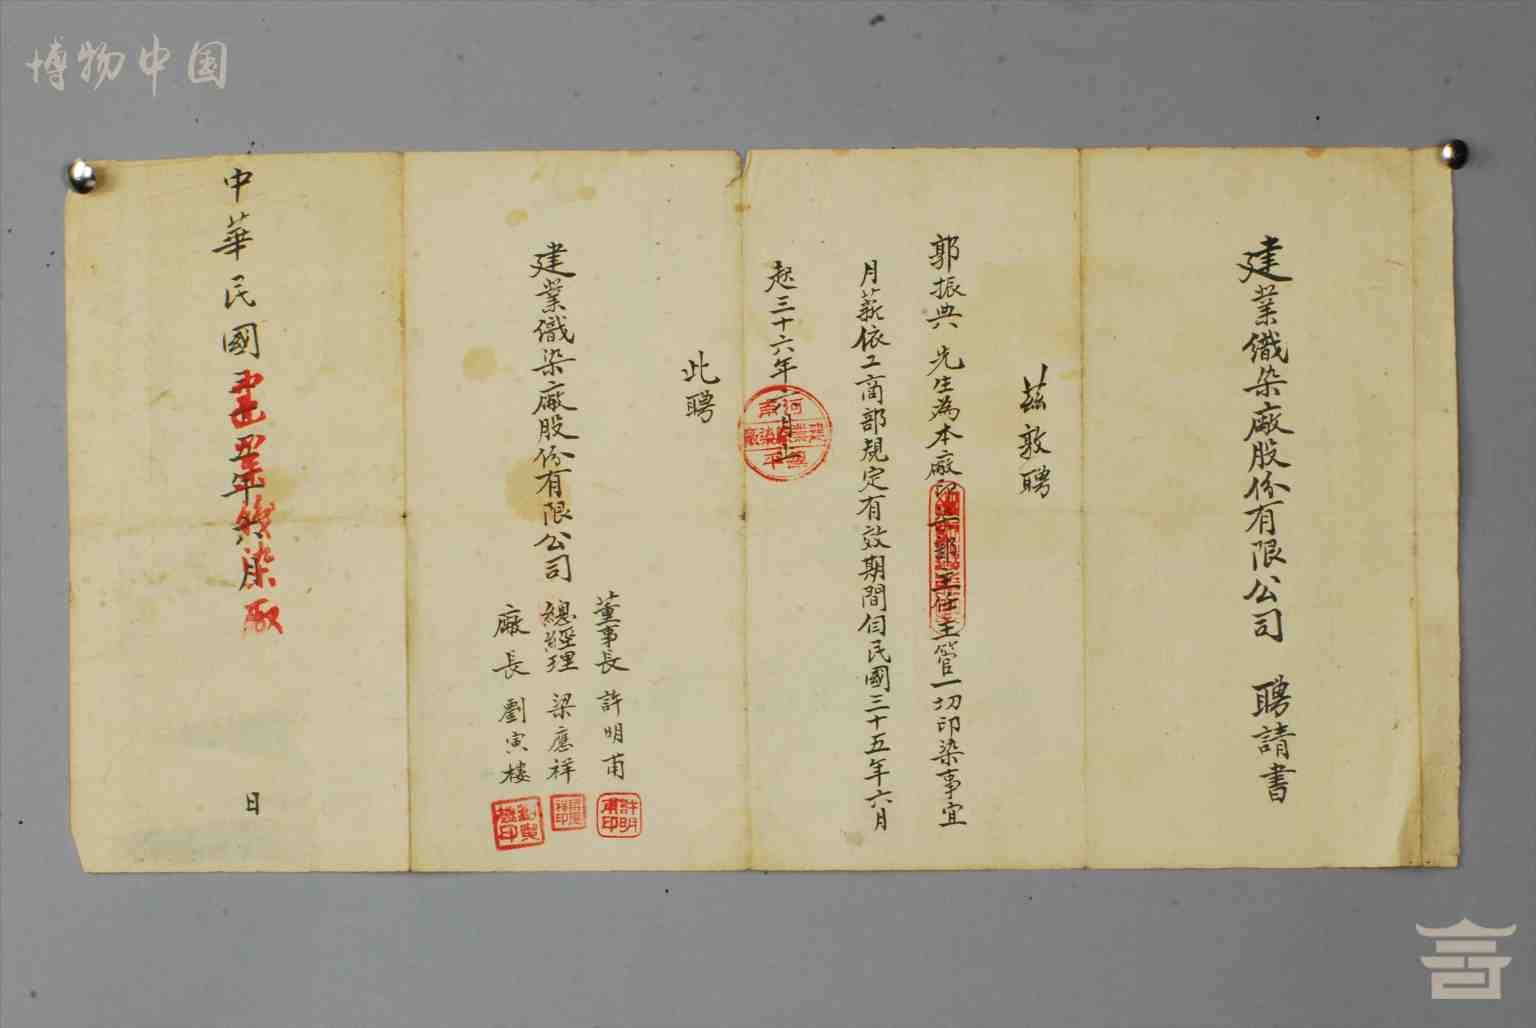 博物中国
建業織染廠股份有限公司 聘請書
茲敦聘
郭振典 先生為本廠印染部主任主管一切印染事宜
月薪依工商部規定有效期間自民國三十五年六月
起三十六年六月止
此聘
建業織染廠股份有限公司
董事長 許明甫
總經理 梁應祥
廠長 劉寅楼
許明甫印
中華民國三十五年六月 日